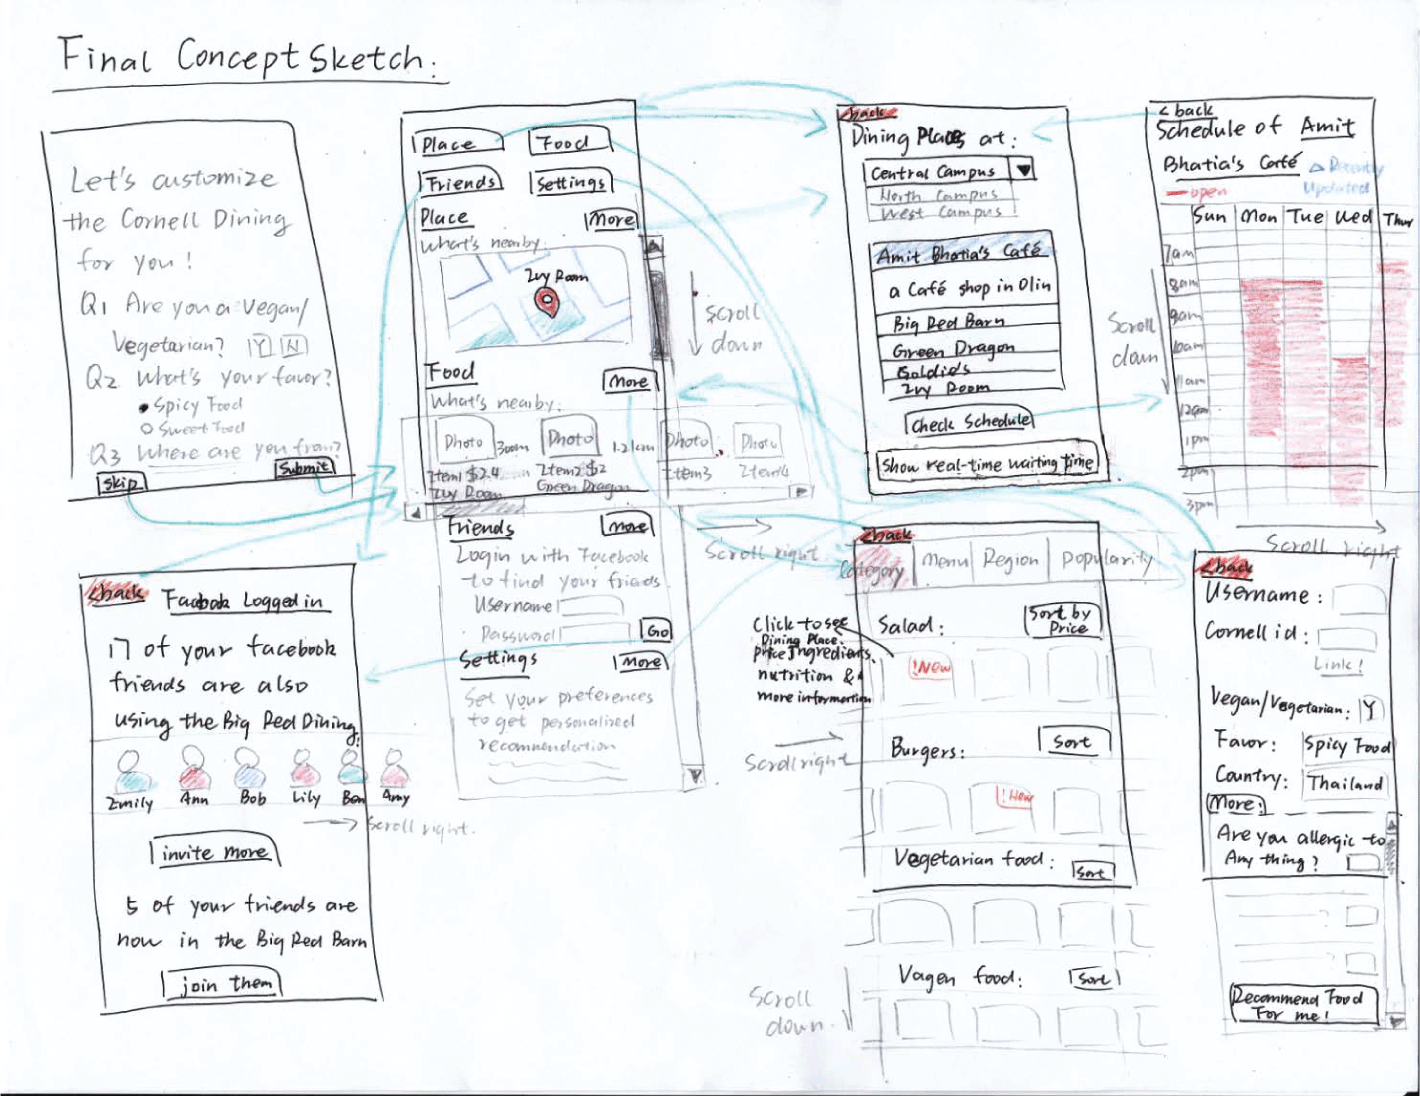 Final Concept Sketch:
Let's customize
the Cornell Dining
for you!
Q1 Are you a Vegan/
Vegetarian? Y N
Q2 What's your favor?
Spicy Food
Sweet Food
Q3 Where are you from?
Skip
Submit
Place
Food
Friends
Settings
Place
More
What's nearby:
Ivy Room
scroll
down
Food
More
What's nearby:
Photo
300m
Photo
1.2km
Photo
Photo
Item1 $2.4
Item2 $2
Item3
Item4
Ivy Room
Green Dragon
Friends
More
Scroll right
Login with Facebook
to find your friends.
Username
Password
Go
Settings
More
Set your preferences
to get personalized
recommendation
<back
Dining Places at:
Central Campus
North Campus
West Campus
Amit Bhatia's Café
a Café shop in Olin
Big Red Barn
Green Dragon
Goldie's
Ivy Room
Check Schedule
Show real-time waiting time
< back
Schedule of Amit
Bhatia's Café
Recently
Updated
open
Sun Mon Tue Wed Thur
7am
8am
9am
10am
11am
12am
1pm
2pm
3pm
Scroll
down
Scroll right
<back
Facebook Logged in
17 of your facebook
friends are also
using the Big Red Dining!
Emily Ann Bob Lily Ben Amy
Scroll right.
invite more
5 of your friends are
now in the Big Red Barn
join them
<back
Category Menu Region popularity
Click to see
Dining Place,
price Ingredients,
nutrition &
more information
Salad:
Sort by
Price
!New
Scroll right
Burgers:
Sort
!New
Vegetarian food:
Sort
Vagen food:
Sort
Scroll
down.
<back
Username:
Cornell id:
Link!
Vegan/Vegetarian: Y
Favor: Spicy Food
Country: Thailand
More:
Are you allergic to
Any thing?
Recommend Food
For me!